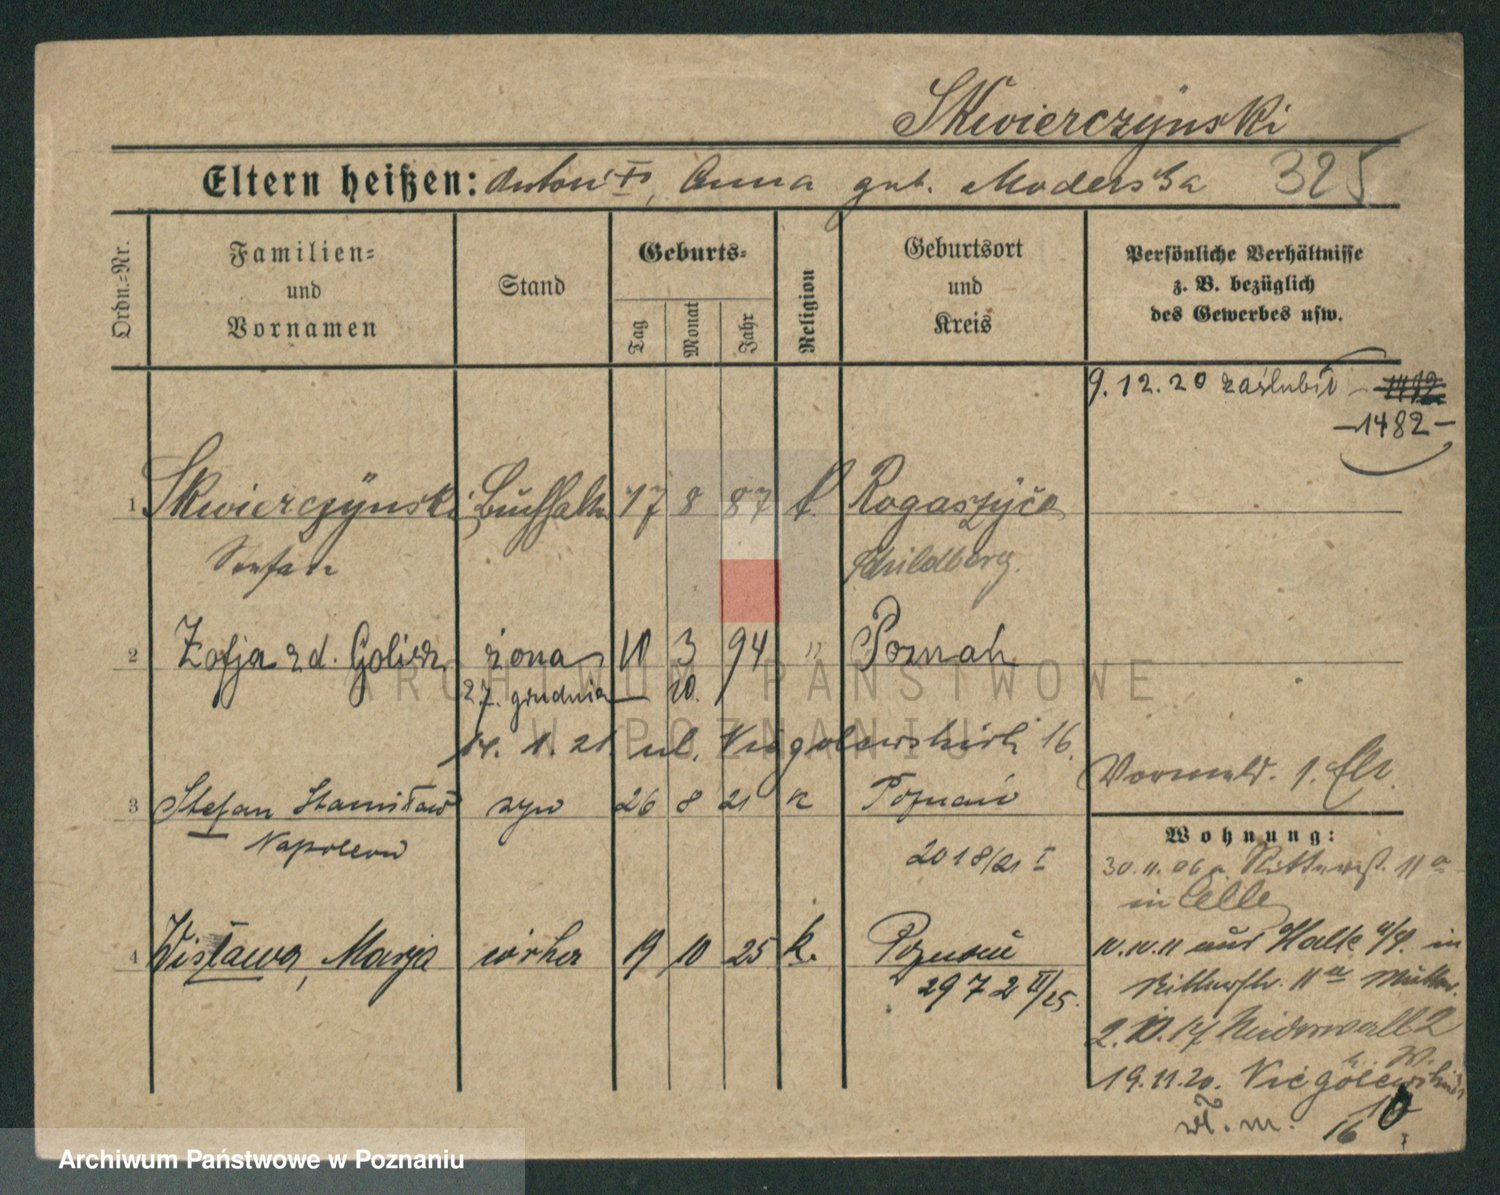 Skwierczyński
Eltern heißen: Anton †, Anna geb. Moderska 325
Ordn.=Nr.
Familien=
und
Vornamen
Stand
Geburts=
Tag
Monat
Jahr
Religion
Geburtsort
und
Kreis
Persönliche Verhältnisse
z. B. bezüglich
des Gewerbes usw.
9.12.20 zaślubił
-1482-
1 Skwierczÿnski Buchhalter 17 8 87 k. Rogaszÿce
Stefan Schildberg.
2 Zofja z d. żona 10 3 94 " Poznań
27. grudnia 20.
14. 1. 21 ul. Niegolewskich 16.
3 Stefan Stanisław syn 26 8 21 k Poznań
Napoleon
2018/21 I
4 Wisława, Marja córka 19 10 25 k. Poznań
2972 II/25.
Vormeld. 1.
Wohnung:
30.11.06 Ritterst. 11a
in Celle
11.10.11 aus Halle a/S. in
Ritterstr. 11a Mutter.
2.10.17 Niederwall 2
19.11.20. Niegolewskich
16
ARCHIWUM PAŃSTWOWE
W POZNANIU
Archiwum Państwowe w Poznaniu